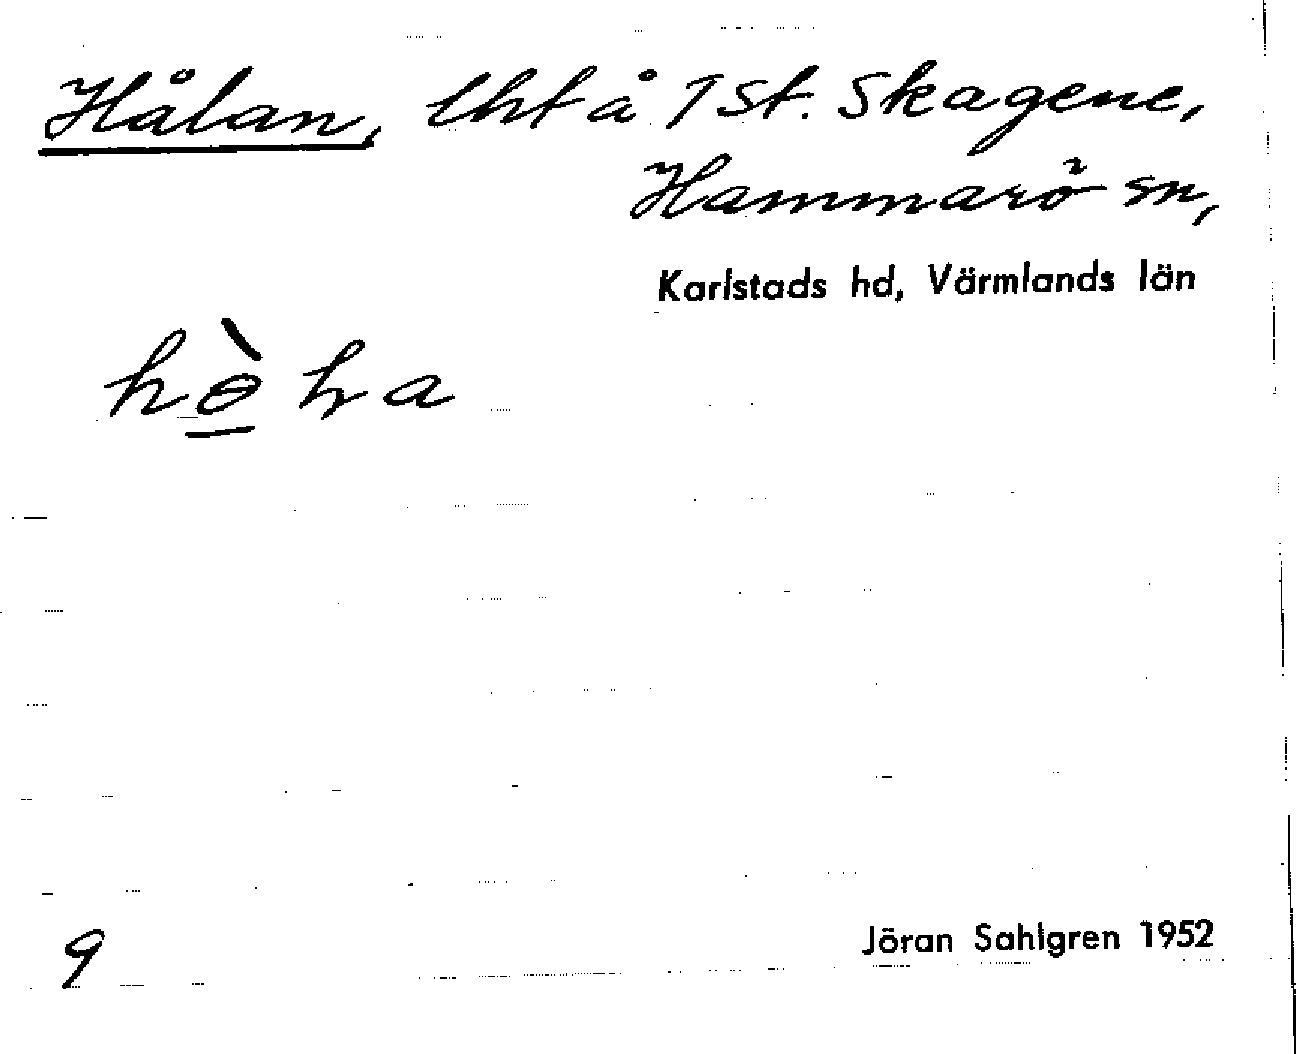 Hålan, lht å 1 St. Skagene,
Hammarö sn,
Karlstads hd, Värmlands län
9
Jöran Sahlgren 1952